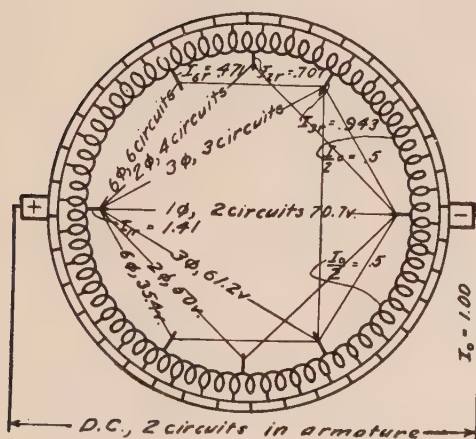 I₆r = .471
I₂r = .707
6φ, 6 circuits
2φ, 4 circuits
3φ, 3 circuits
I₃r = .943
I₀/2 = .5
+
1φ, 2 circuits 70.7v.
I₁r = 1.41
−
3φ, 61.2v.
2φ, 50v.
6φ, 35.4v.
I₀/2 = .5
I₀ = 1.00
D.C., 2 circuits in armature